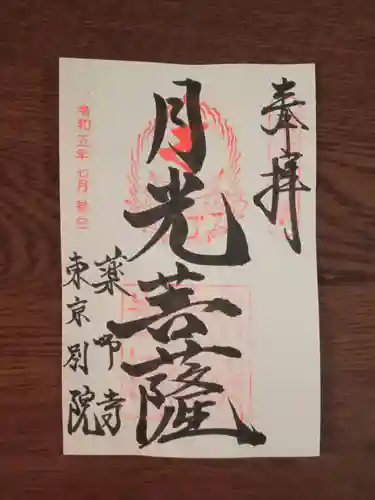 奉拝
月光菩薩
薬師寺
東京別院
令和五年七月